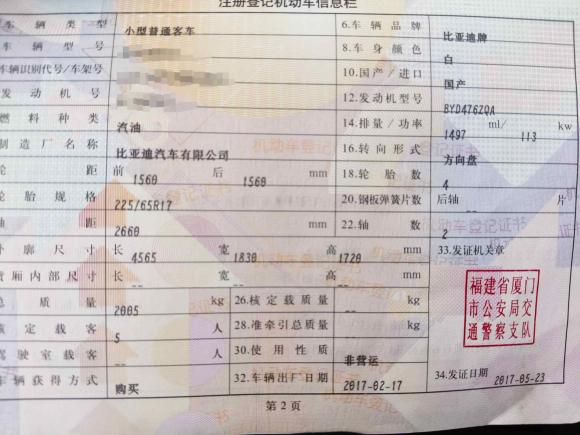 注册登记机动车信息栏
车辆类型 小型普通客车 6.车辆品牌 比亚迪牌
车辆型号 8.车身颜色 白
车辆识别代号/车架号 10.国产/进口 国产
发动机号 12.发动机型号 BYD476ZQA
燃料种类 汽油 14.排量/功率 1497 ml/ 113 kw
制造厂名称 比亚迪汽车有限公司 16.转向形式 方向盘
轮距 前 1560 后 1560 mm 18.轮胎数 4
轮胎规格 225/65R17 20.钢板弹簧片数 后轴 -- 片
轴距 2660 mm 22.轴数 2
外廓尺寸 长 4565 宽 1830 高 1720 mm 33.发证机关章
货厢内部尺寸 长 -- 宽 -- 高 -- mm
总质量 2005 kg 26.核定载质量 -- kg
核定载客 5 人 28.准牵引总质量 -- kg
驾驶室载客 -- 人 30.使用性质 非营运
车辆获得方式 购买 32.车辆出厂日期 2017-02-17 34.发证日期 2017-05-23
福建省厦门
市公安局交
通警察支队
第2页